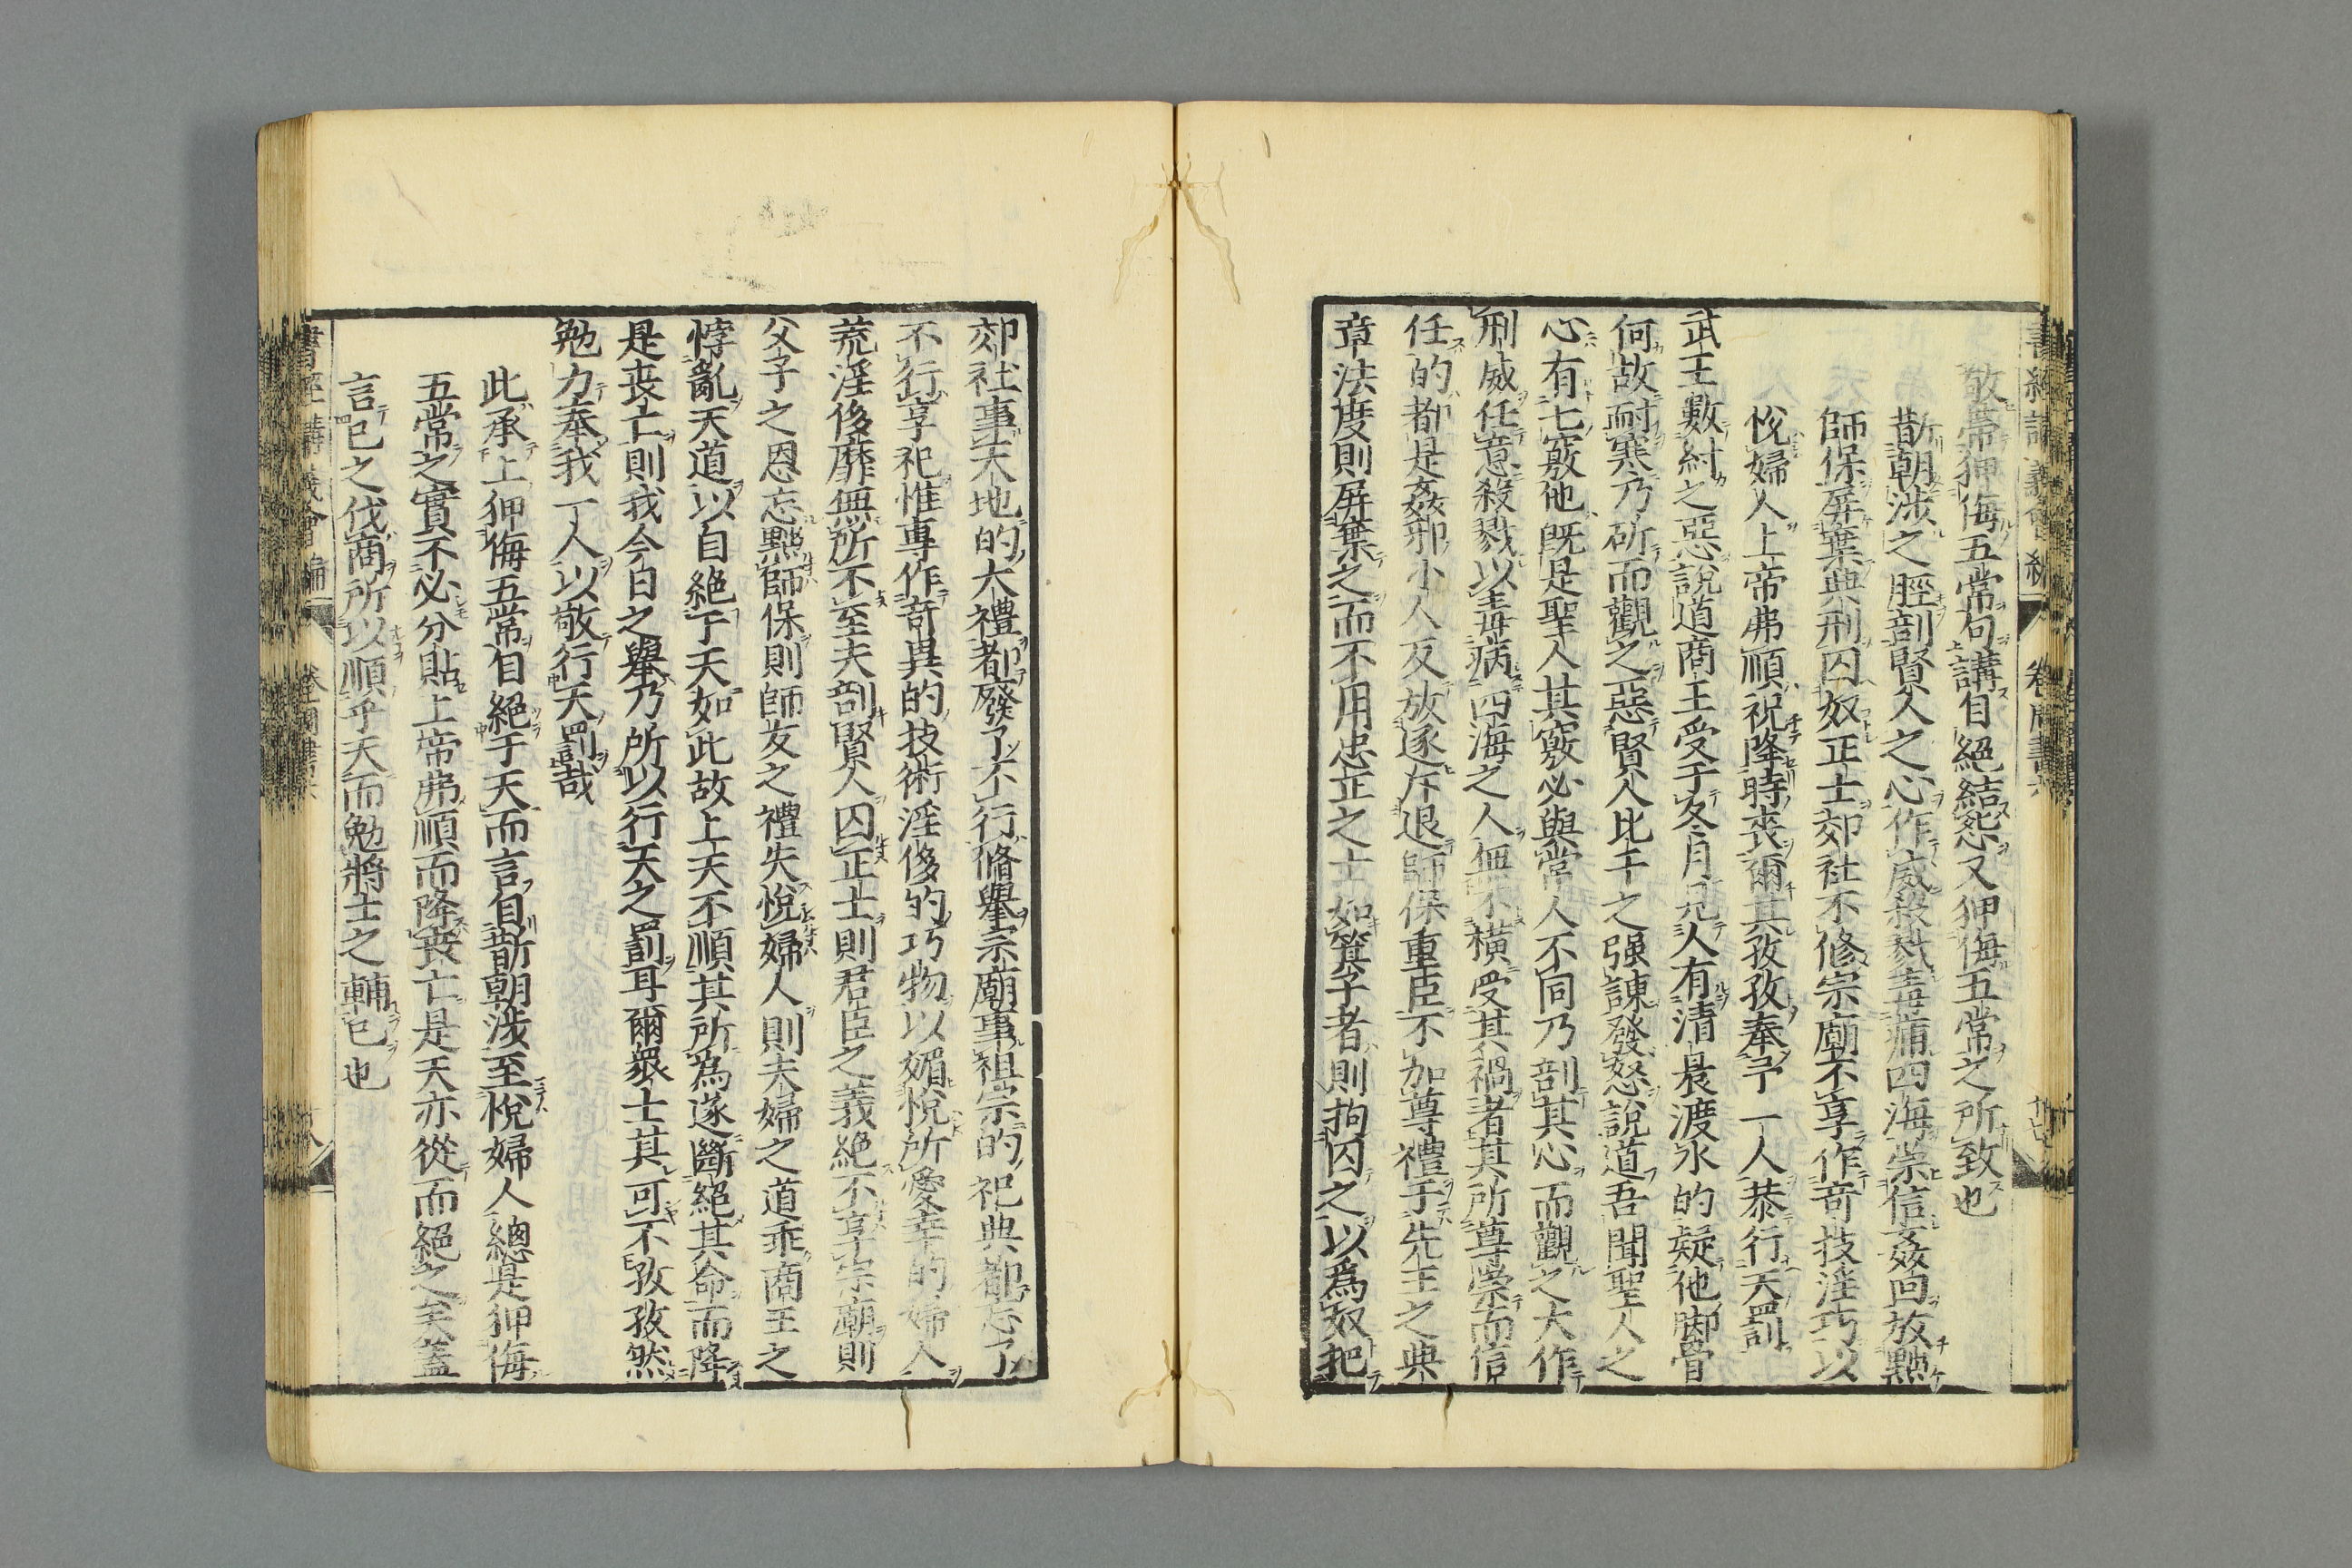 敬帶狎侮五常句講自絕結怨又狎侮五常之所致也
斮朝涉之脛剖賢人之心作威殺戮毒痡四海崇信姦回放黜
師保屏棄典刑囚奴正士郊社不修宗廟不享作奇技淫巧以
悅婦人上帝弗順祝降時喪爾其孜孜奉予一人恭行天罰
武王數紂之惡說道商王受于冬月見人有清晨渡水的疑他脚骨
何故耐寒乃斫而觀之惡賢人比干之强諫發怒說道吾聞聖人之
心有七竅他既是聖人其竅必與常人不同乃剖其心而觀之大作
刑威任意殺戮以毒病四海之人無不橫受其禍者其所尊崇而信
任的都是姦邪小人反放逐斥退師保重臣不加尊禮于先王之典
章法度則屏棄之而不用忠正之士如箕子者則拘囚之以爲奴把
郊社事天地的大禮都廢了不行脩舉宗廟事祖宗的祀典都忘了
不行享祀惟專作奇異的技術淫侈的巧物以媚悅所愛幸的婦人
荒淫侈靡無所不至夫剖賢人囚正士則君臣之義絕不享宗廟則
父子之恩忘黜師保則師友之禮失悅婦人則夫婦之道乖商王之
悖亂天道以自絕于天如此故上天不順其所爲遂斷絕其命而降
是喪亡則我今日之舉乃所以行天之罰耳爾衆士其可不孜孜然
勉力奉我一人以敬行天罰哉
此承上狎侮五常自絕于天而言自斮朝涉至悅婦人總是狎侮
五常之實不必分貼上帝弗順而降喪亡是天亦從而絕之矣蓋
言巳之伐商所以順乎天而勉將士之輔巳也
書經講義會編